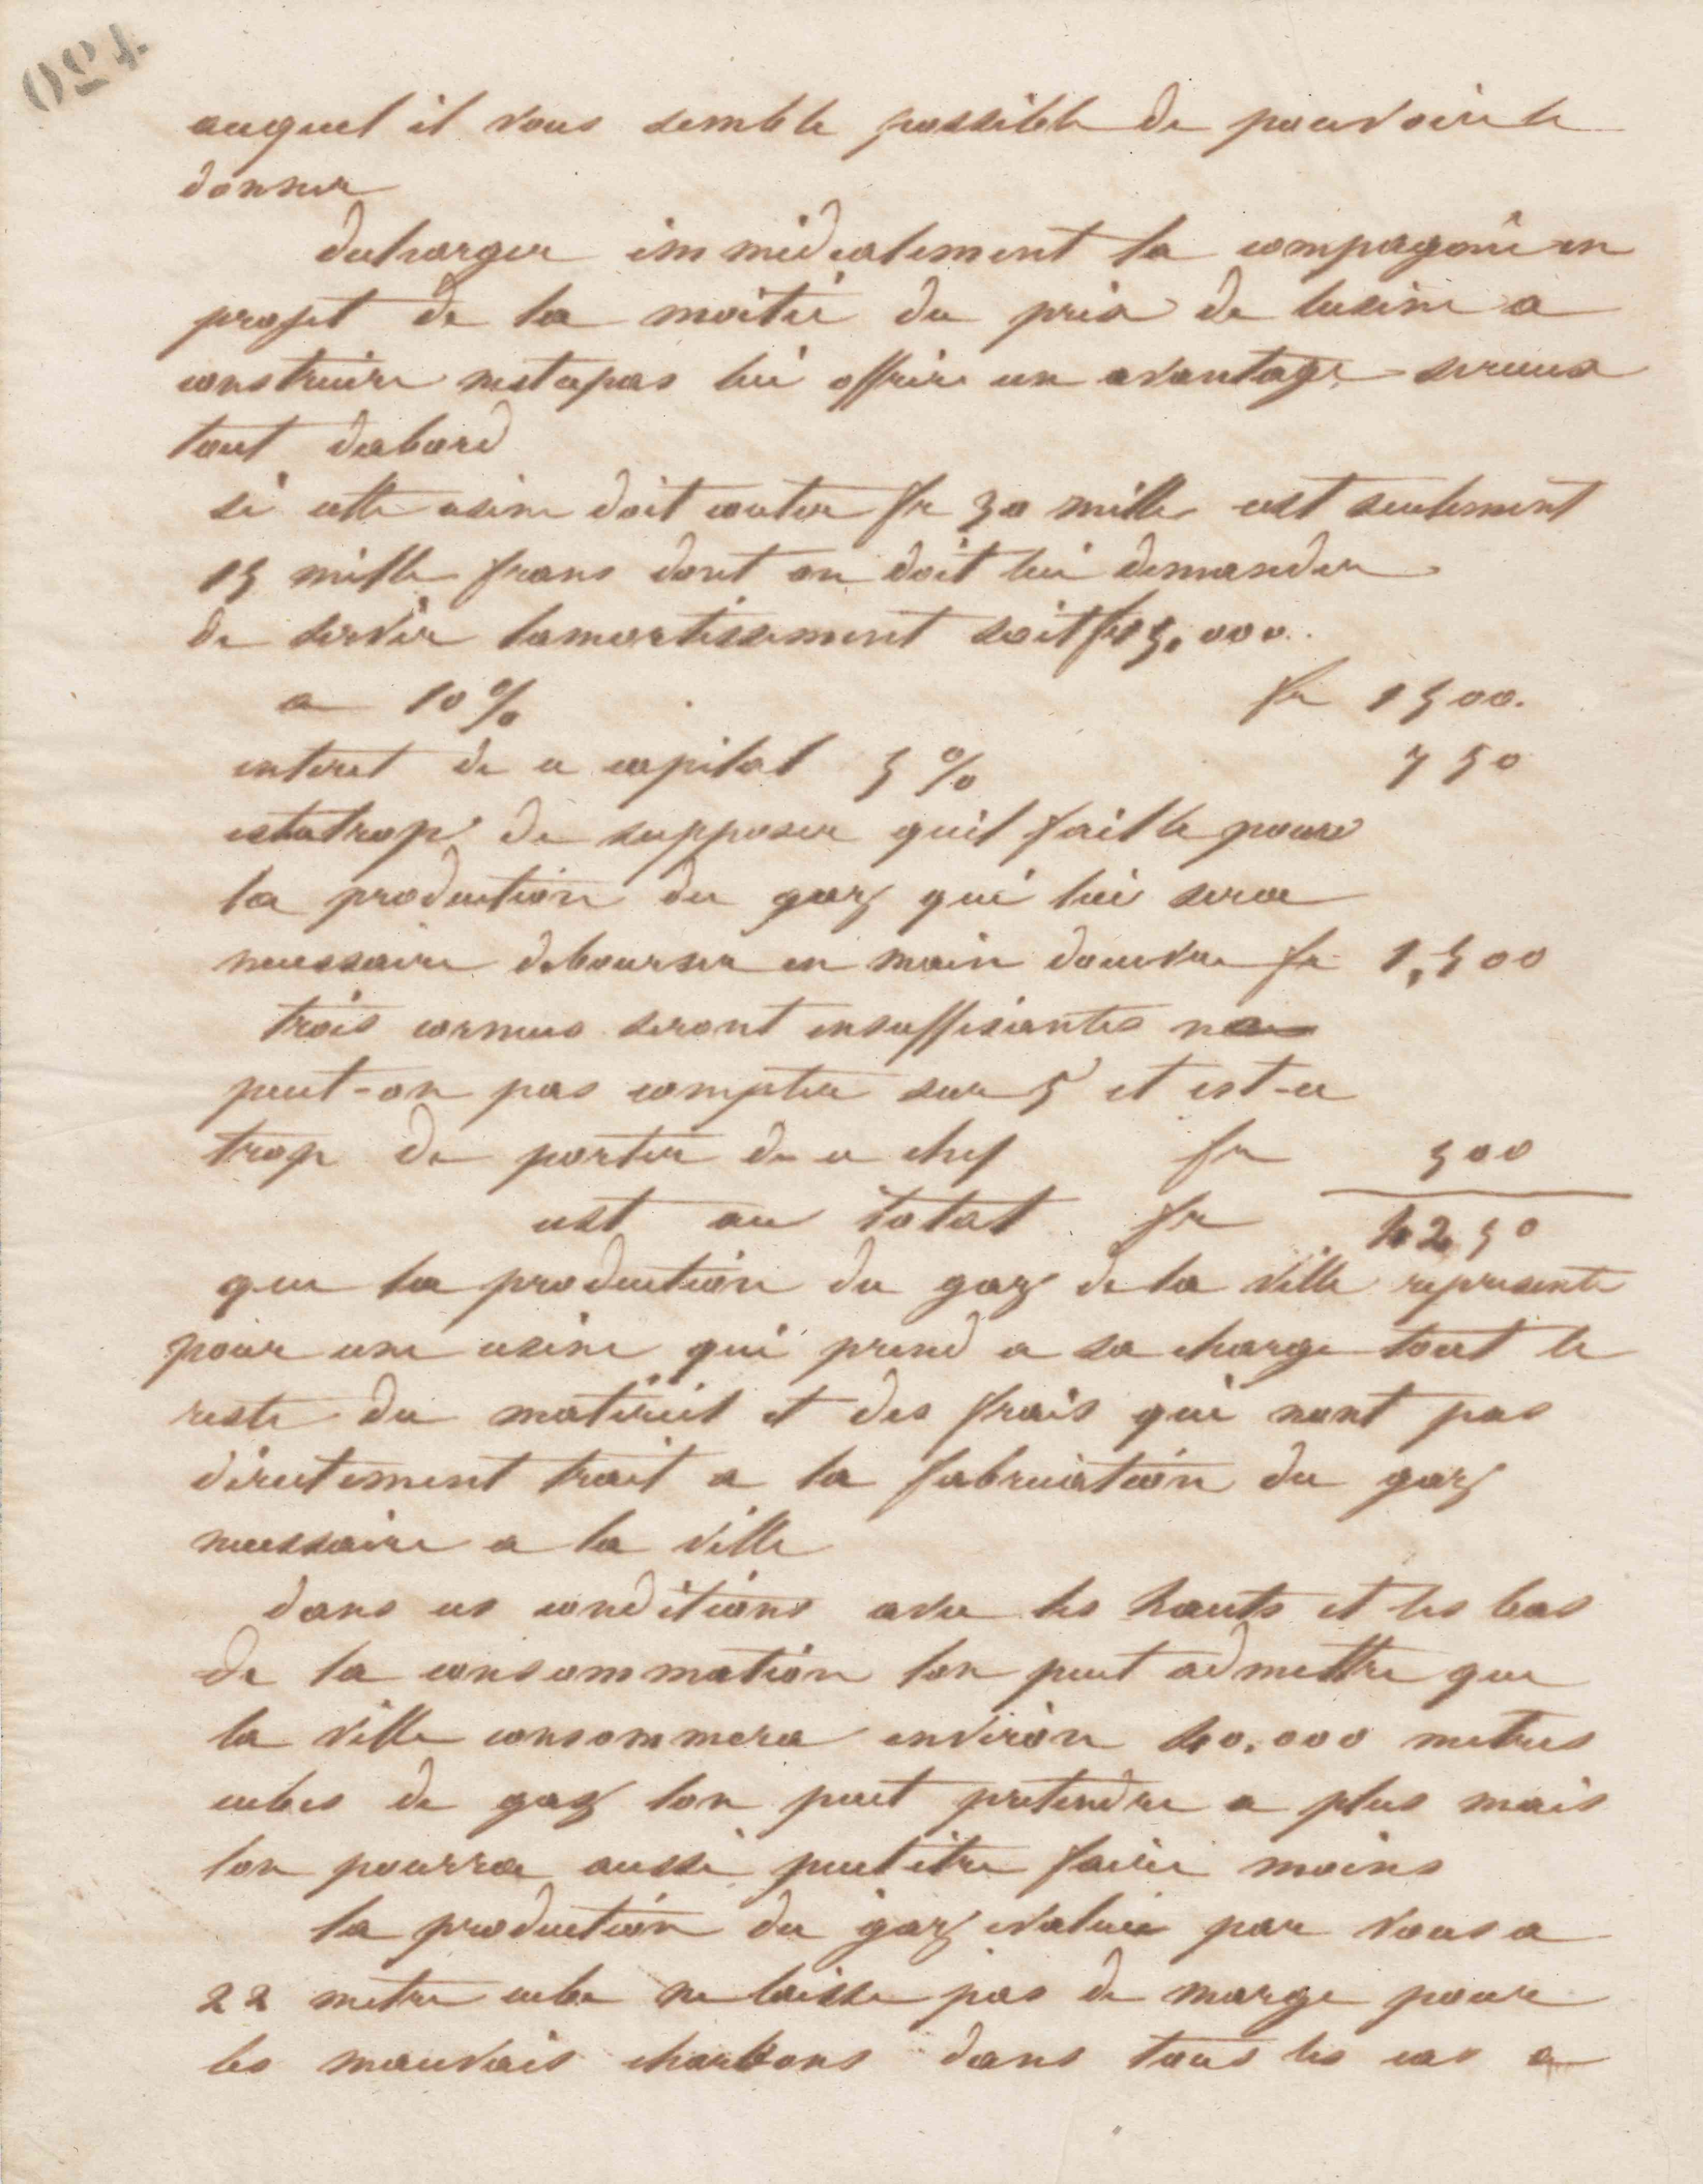 420
auquel il vous semble possible de pouvoir le
donner
decharger immediatement la compagnie en
projet de la moitié du prix de lusine a
construire nestcepas lui offrir un avantage serieux
tout dabord
si cette usine doit couter fr 30 mille cest seulement
15 mille francs dont on doit lui demander
de servir lamortissement soit fr 15.000.
a 10% fr 1500.
interet de ce capital 5% 750
estcetrop de supposer quil faille pour
la production du gaz qui lui sera
necessaire debourser en main douvre fr 1,500
trois cornues seront insuffisantes ne
peut-on pas compter sur 5 et est-ce
trop de porter de ce chef fr 500
cest au total fr 4250
que la production du gaz de la ville represente
pour une usine qui prend a sa charge tout le
reste du materiel et des frais qui nont pas
directement trait a la fabrication du gaz
necessaire a la ville
dans ces conditions avec les hauts et les bas
de la consommation lon peut admettre que
la ville consommera environ 40.000 metres
cubes de gaz lon peut pretendre a plus mais
lon pourra aussi peutetre faire moins
la production du gaz evaluée par vous a
22 metre cube ne laisse pas de marge pour
les mauvais charbons dans tous les cas a